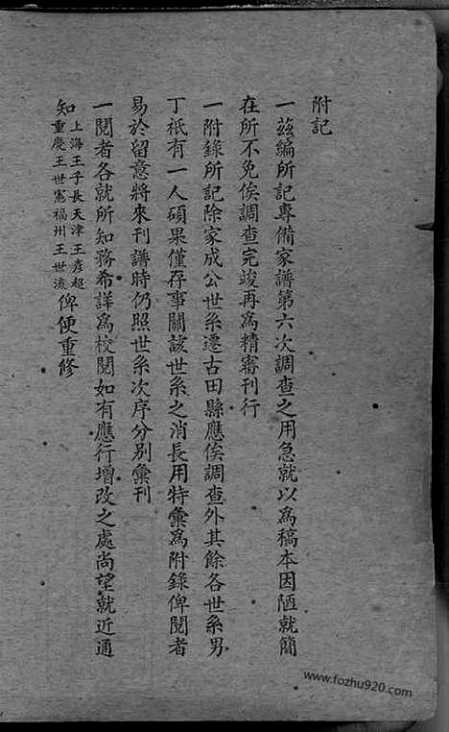 附記
一茲編所記專備家譜第六次調查之用急就以為稿本因陋就簡
在所不免俟調查完竣再為精審刊行
一附錄所記除家成公世系遷古田縣應俟調查外其餘各世系男
丁祇有一人碩果僅存事關該世系之消長用特彙為附錄俾閱者
易於留意將來刊譜時仍照世系次序分別彙刊
一閱者各就所知務希詳為校閱如有應行增改之處尚望就近通
知上海王子長天津王彥超重慶王世憲福州王世 俾便重修
www.fozhu920.com